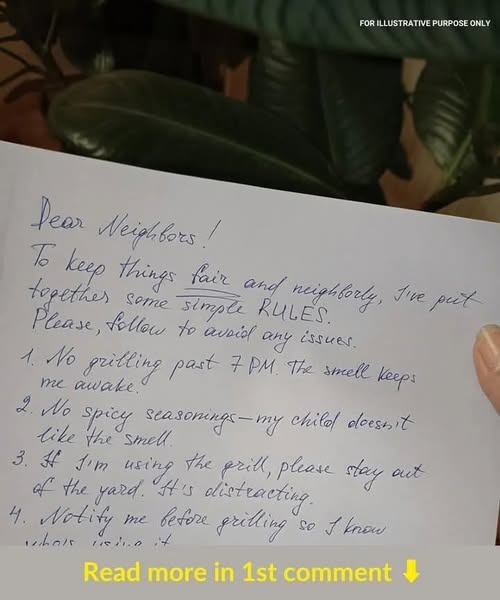 FOR ILLUSTRATIVE PURPOSE ONLY
Dear Neighbors!
To keep things fair and neighborly, I've put
together some simple RULES.
Please, follow to avoid any issues.
1. No grilling past 7 PM. The smell keeps
me awake.
2. No spicy seasonings – my child doesn't
like the smell.
3. If I'm using the grill, please stay out
of the yard. It's distracting.
4. Notify me before grilling so I know
who's using it
Read more in 1st comment